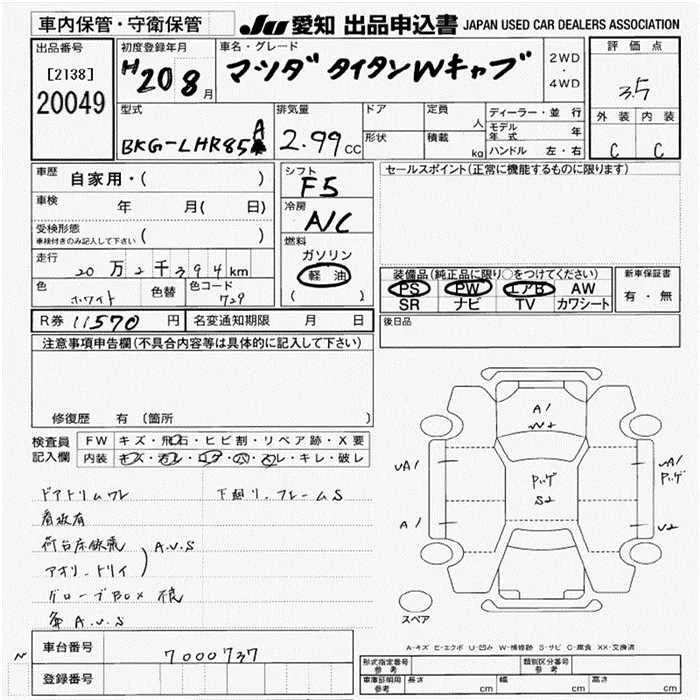 車内保管・守衛保管
JU 愛知 出品申込書 JAPAN USED CAR DEALERS ASSOCIATION
出品番号
[2138]
20049
初度登録年月
H20 8月
車名・グレード
マツダ タイタンWキャブ
2WD
・
4WD
評価点
3.5
外装 内装
C C
型式
BKG-LHR85A
排気量
2.99 CC
ドア
形状
定員 人
積載 kg
ディーラー・並行
モデル年式 年
ハンドル 左・右
車歴
自家用・( )
車検
年 月( 日)
受検形態
車検付きのみ記入して下さい ( )
走行
20万2千394km
色 ホワイト 色替 色コード 729
R券 11570 円 名変通知期限 月 日
シフト
F5
冷房
A/C
燃料
ガソリン
軽油
( )
セールスポイント(正常に機能するものに限ります)
装備品(純正品に限り○をつけてください)
PS PW エアB AW
SR ナビ TV カワシート
新車保証書
有・無
後日品
注意事項申告欄(不具合内容等は具体的に記入して下さい)
修復歴 有 (箇所 )
検査員記入欄
FW キズ・飛石・ヒビ割・リペア跡・X要
内装 キズ・汚レ・コゲ・穴・スレ・キレ・破レ
ドアトリムワレ 下廻リ、フレームS
看板有
荷台床鉄板 A.U.S
アオリ、トリイ
グローブBOX
A.U.S
A1
W2
A1
A1
A1
U2
S2
スペア
A-キズ E-エクボ U-凹み W-補修跡 S-サビ C-腐食 XX-交換済
車台番号
7000737
登録番号
形式指定番号 参考
類別区分番号 参考
車庫証明用 参考 長さ cm 幅 cm 高さ cm